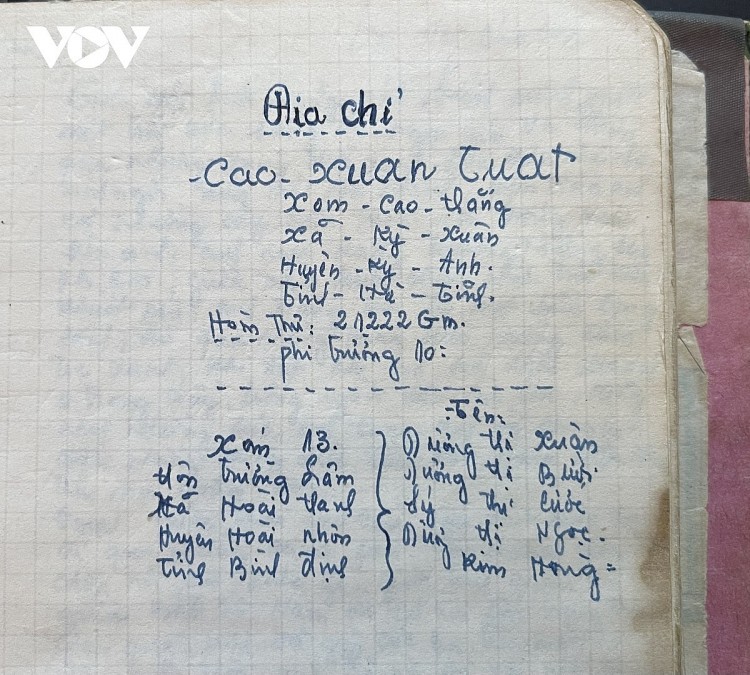 VOV
Địa chỉ
- Cao - Xuan Tuat
Xom - Cao - thắng
Xã - Kỳ - Xuân
Huyện - Kỳ - Anh.
Tỉnh - Hà - Tĩnh.
Hòm Thư: 21222 Gm.
phi trưởng 10:
:Tên:
Xóm 13.
thôn Trường Lâm
Xã Hoài thanh
Huyện Hoài nhơn
Tỉnh Bình định
Dương thị Xuân
Dương thị Bưởi
Lý thị Cước
thị Ngọc.
Kim Hồng =